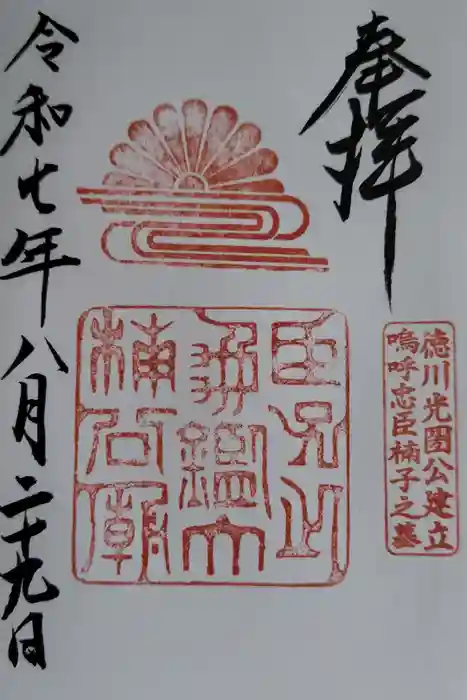 奉拝
徳川光圀公建立
嗚呼忠臣楠子之墓
臣子之
龜鑑大
楠公廟
令和七年八月二十九日